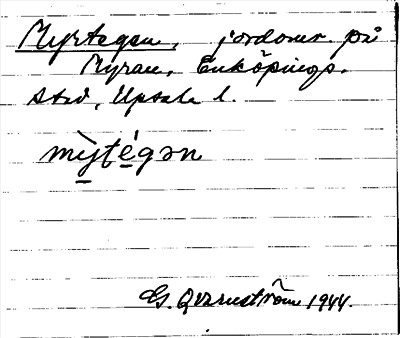 Myrtegen, jordomr. på
Myran, Enköpings.
stad, Upsala l.
mỳtégən
G. Qvarnström 1944.